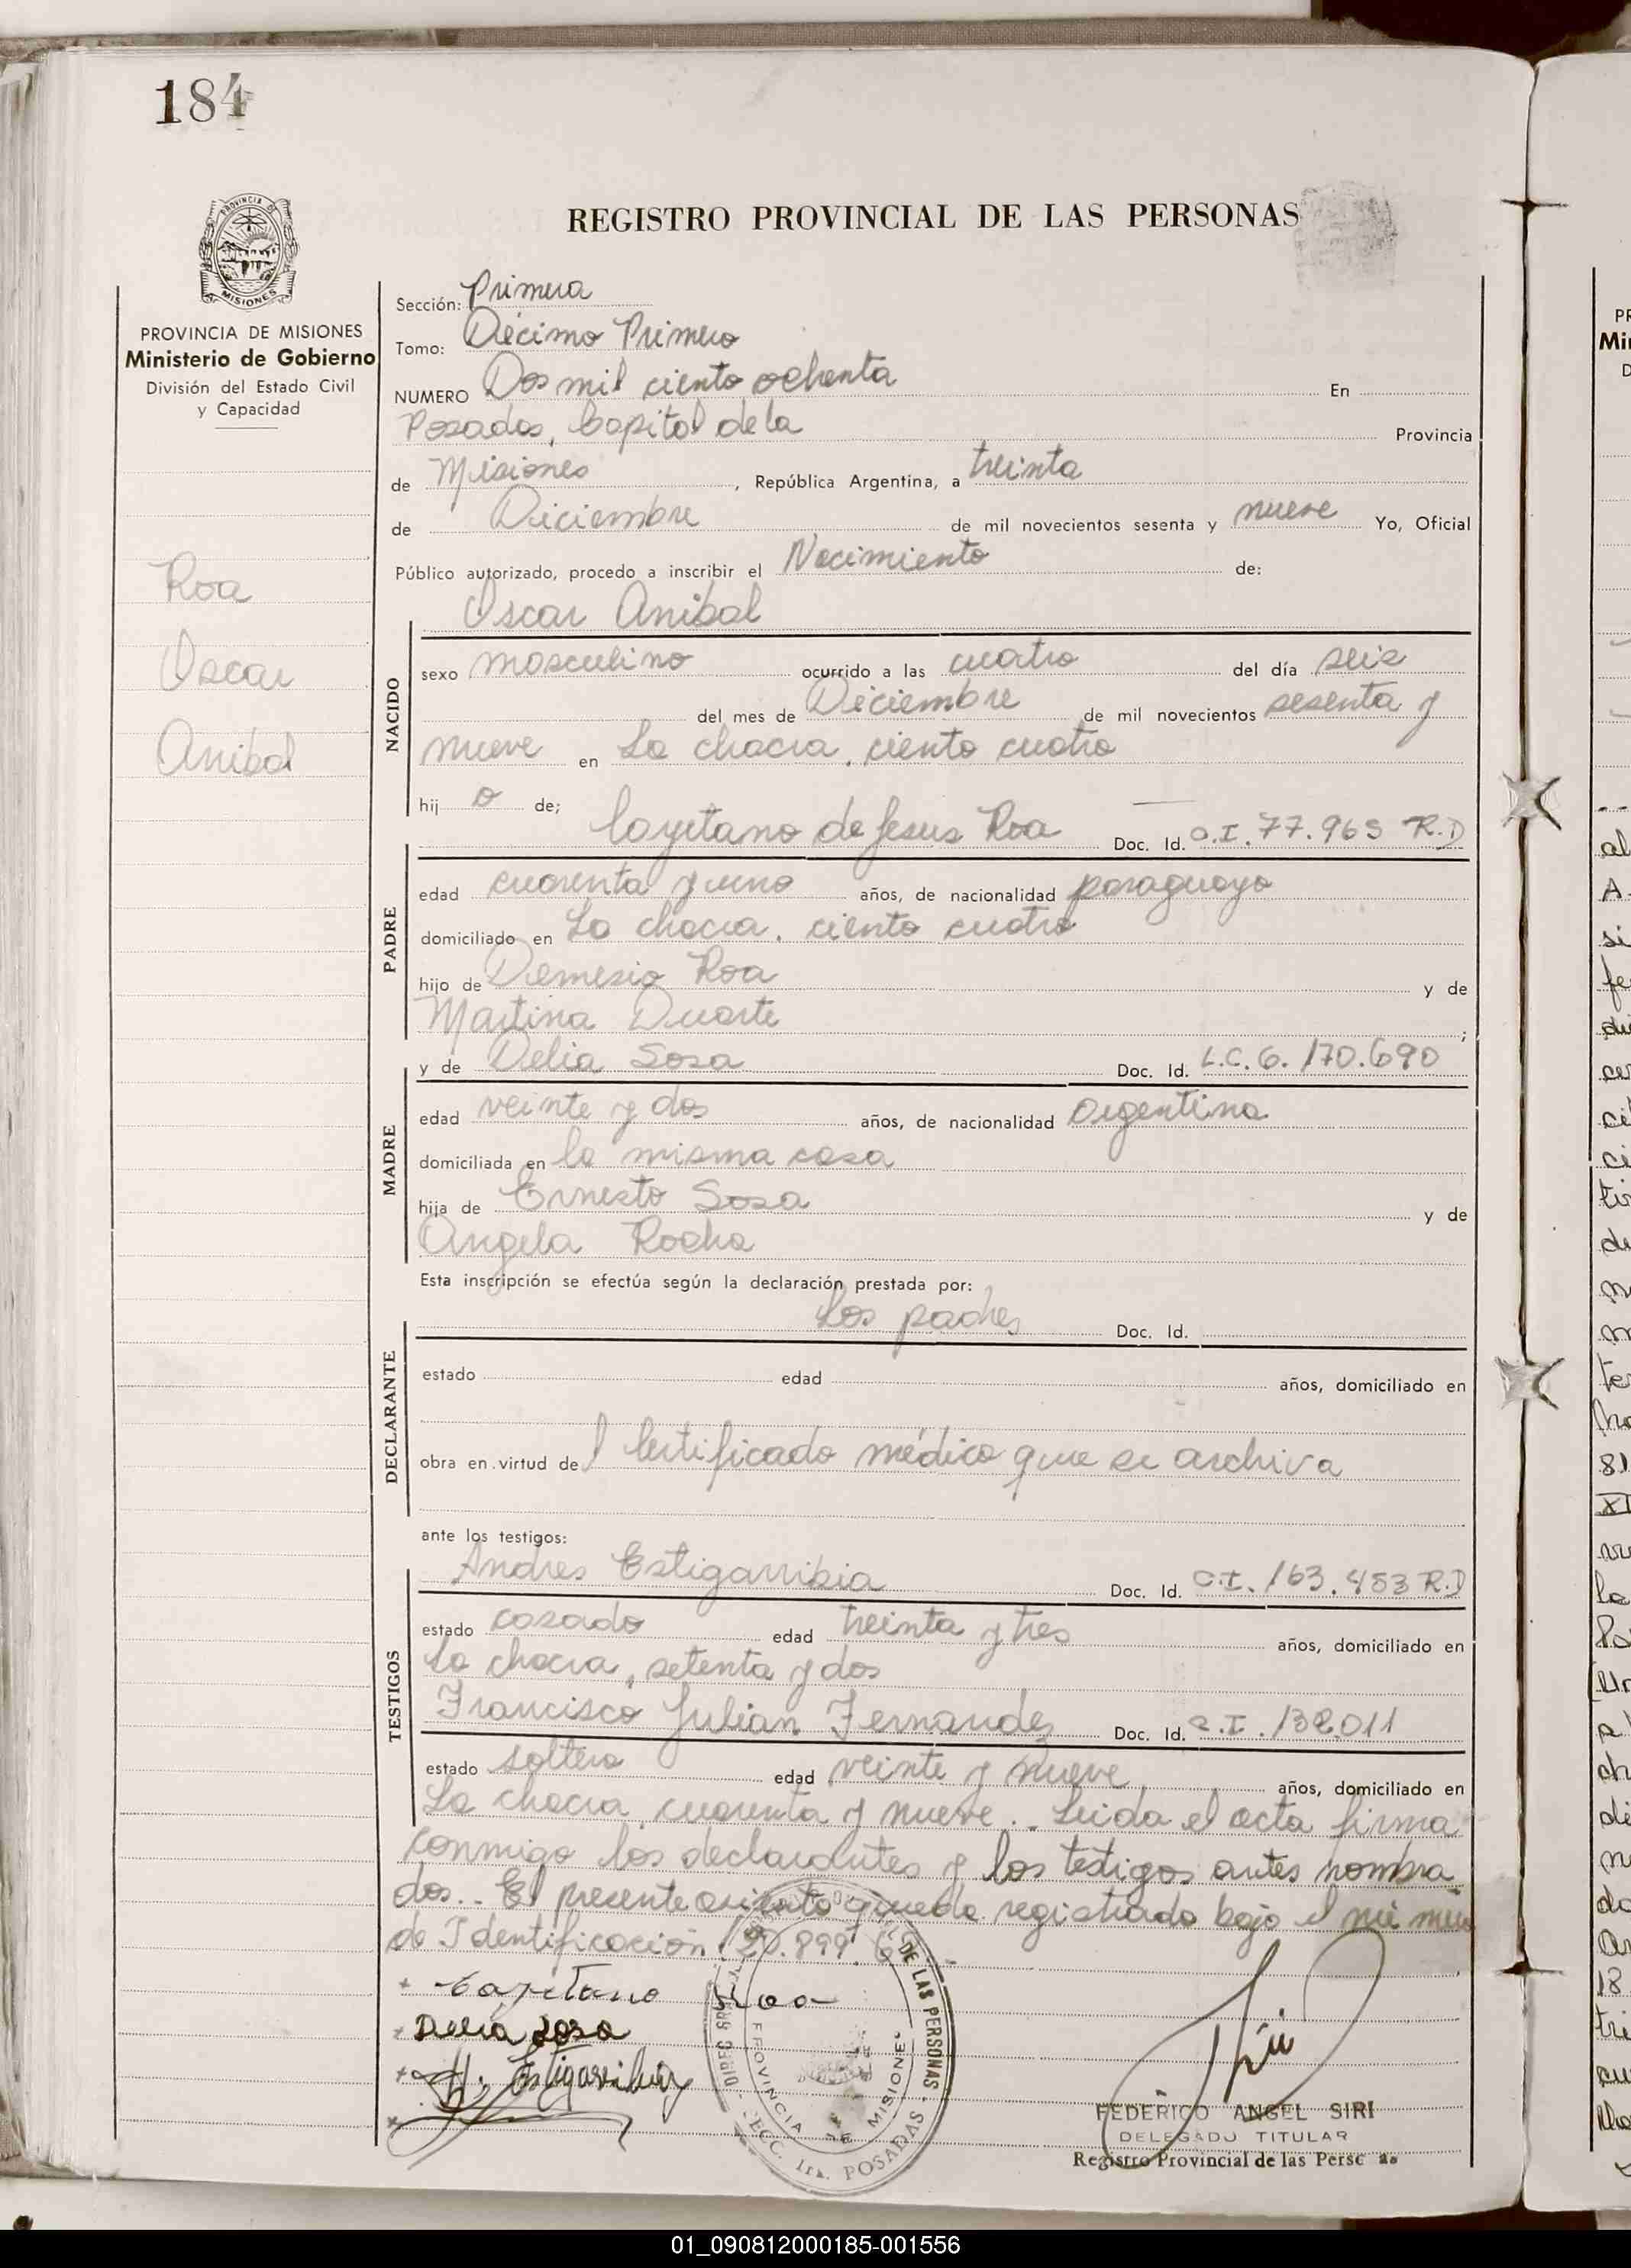 184
REGISTRO PROVINCIAL DE LAS PERSONAS
PROVINCIA DE
MISIONES
PROVINCIA DE MISIONES
Ministerio de Gobierno
División del Estado Civil
y Capacidad
Roa
Oscar
Anibal
Sección: Primera
Tomo: Décimo Primero
NUMERO Dos mil ciento ochenta En
Posadas, Capital de la Provincia
de Misiones, República Argentina, a treinta
de Diciembre de mil novecientos sesenta y nueve Yo, Oficial
Público autorizado, procedo a inscribir el Nacimiento de:
Oscar Anibal
NACIDO
sexo masculino ocurrido a las cuatro del día seis
del mes de Diciembre de mil novecientos sesenta y
nueve en La chacra, ciento cuatro
hij o de;
Cayetano de Jesus Roa Doc. Id. C.I. 77.969 R.D
PADRE
edad cuarenta y uno años, de nacionalidad paraguayo
domiciliado en La chacra, ciento cuatro
hijo de Demesio Roa y de
Martina Duarte;
y de Delia Sosa Doc. Id. L.C. 6.170.690
MADRE
edad veinte y dos años, de nacionalidad argentina
domiciliada en la misma casa
hija de Ernesto Sosa y de
Angela Rocha
Esta inscripción se efectúa según la declaración prestada por:
Los padres Doc. Id.
DECLARANTE
estado edad años, domiciliado en
obra en virtud de l Certificado médico que se archiva
ante los testigos:
Andres Estigarribia Doc. Id. C.I. 163.453 R.D
TESTIGOS
estado casado edad treinta y tres años, domiciliado en
La chacra, setenta y dos
Francisco Julian Fernandes Doc. Id. C.I. 132.011
estado soltero edad veinte y nueve años, domiciliado en
La chacra, cuarenta y nueve.. Leida el acta firma
conmigo los declarantes y los testigos antes nombra
dos.. El presente asiento queda registrado bajo el número
de Identificación
Cayetano Roa
Delia Sosa
Estigarribia
DE LAS PERSONAS
PROVINCIA DE MISIONES
SECC. 1ra. POSADAS
FEDERICO ANGEL SIRI
DELEGADO TITULAR
Registro Provincial de las Personas
01_090812000185-001556